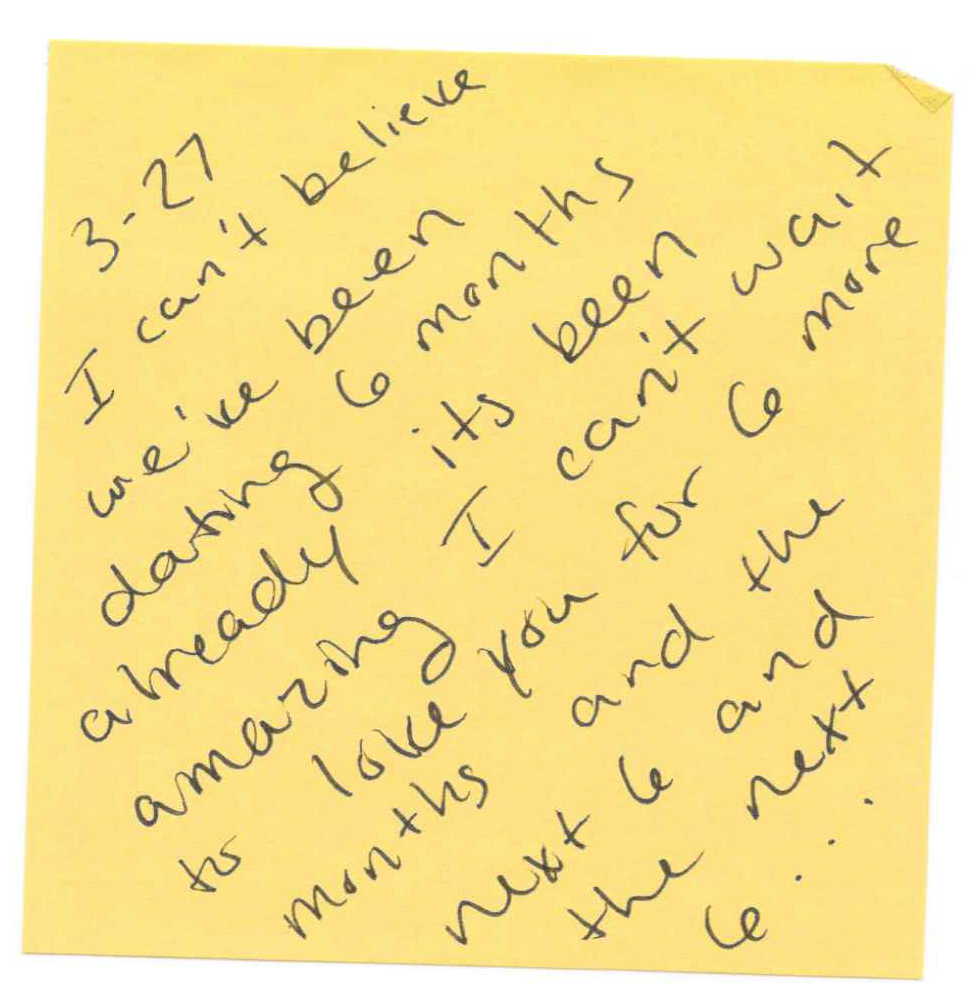 3-27
I can't believe
we've been
dating 6 months
already its been
amazing I can't wait
to love you for 6 more
months and the
next 6 and
the next
6...